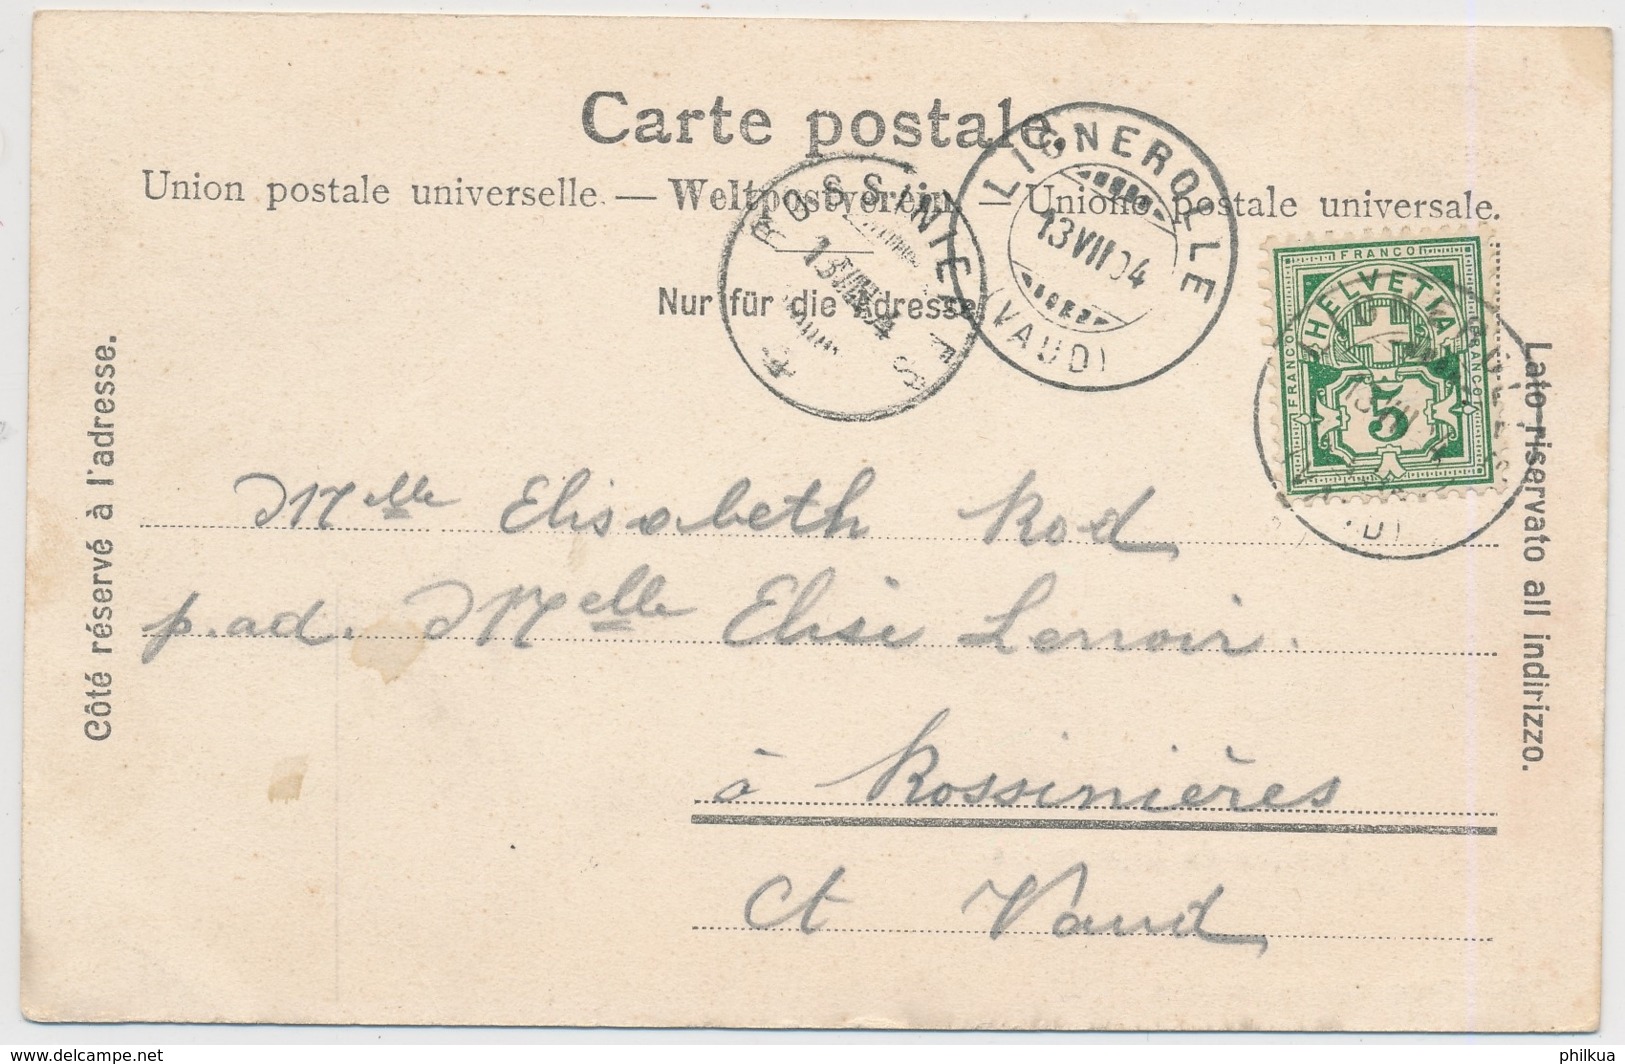 Carte postale.
Union postale universelle. — Weltpostverein. — Unione postale universale.
Nur für die Adresse
Côté réservé à l'adresse.
Lato riservato all indirizzo.
ROSSINIERES
13 VII 04
LIGNEROLLE
13 VII 04
(VAUD)
FRANCO
FRANCO
FRANCO
HELVETIA
5
Mlle Elisabeth Rod
p. ad. Mlle Elise Lenoir.
à Rossinières
Ct Vaud
delcampe.net
philkua